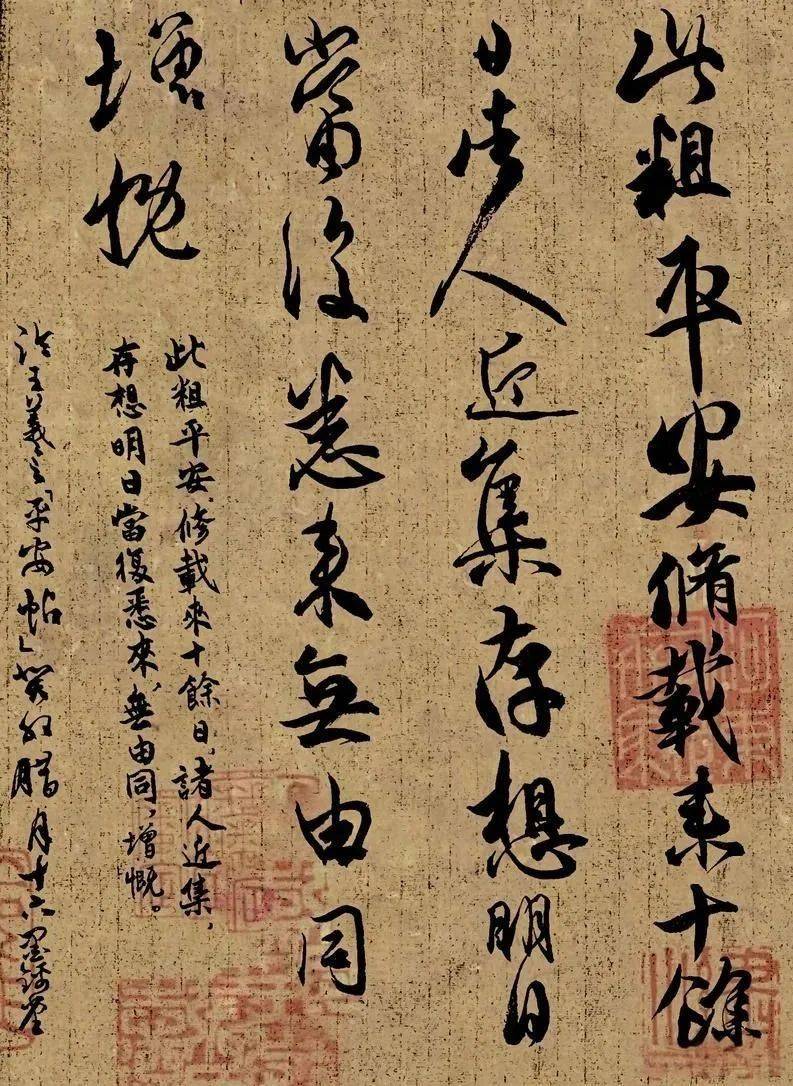 此粗平安脩載来十餘
日諸人近集存想明日
當復悉来無由同
增慨
此粗平安、修載來十餘日，諸人近集，
存想明日當復悉來，無由同，增慨。
王羲之「平安帖」癸卯腊月十六墨